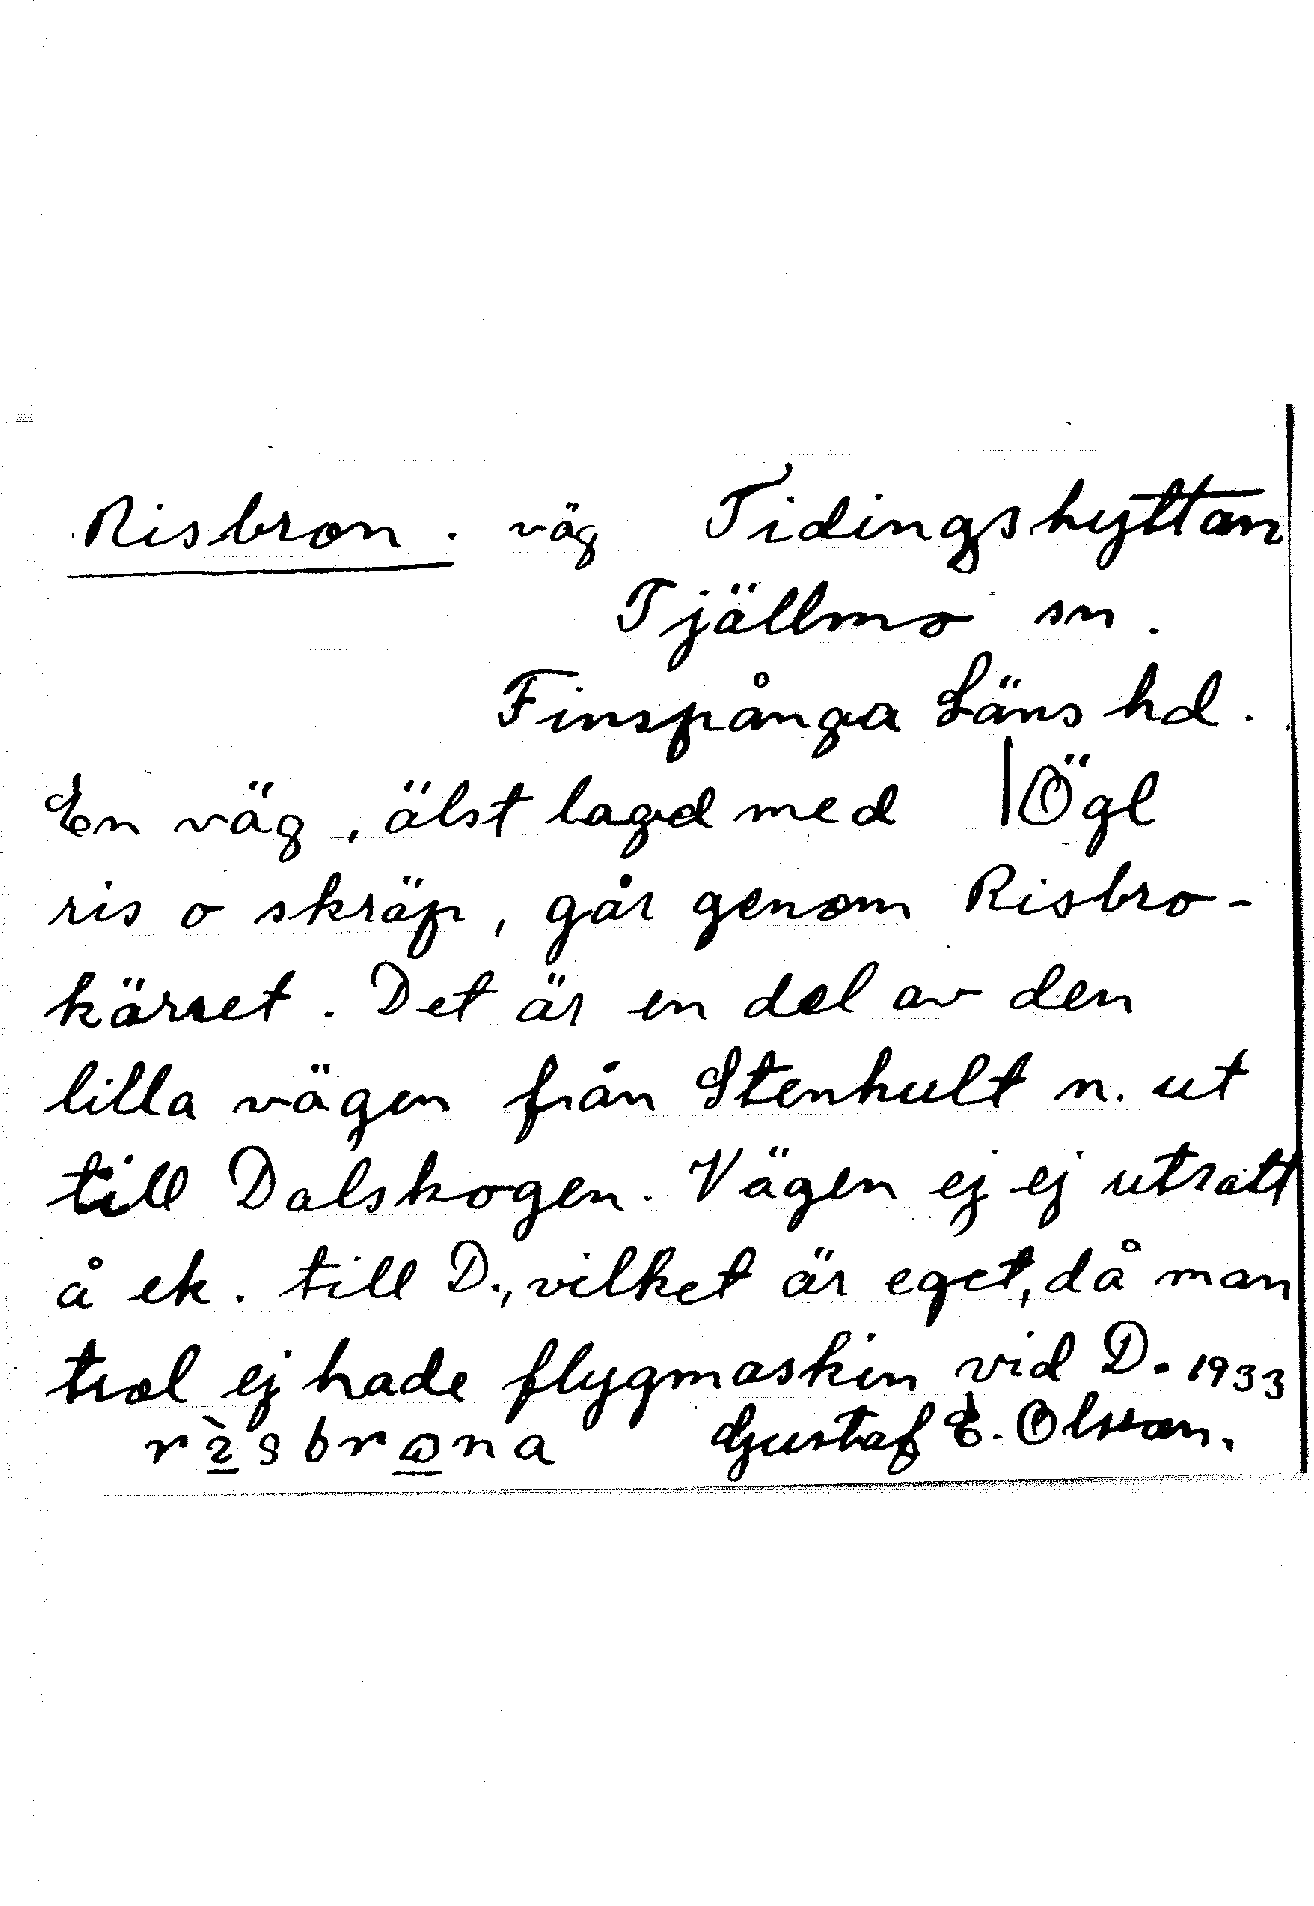 Risbron. väg Tidingshyttan
Tjällmo sn.
Finspånga Läns hd.
En väg, älst lagd med Ögl
ris o skräp, går genom Risbro-
kärret. Det är en del av den
lilla vägen från Stenhult n. ut
till Dalskogen. Vägen ej ej utsatt
å ek. till D., vilket är eget, då man
trol ej hade flygmaskin vid D. 1933
rìsbrona Gustaf E. Olsson.